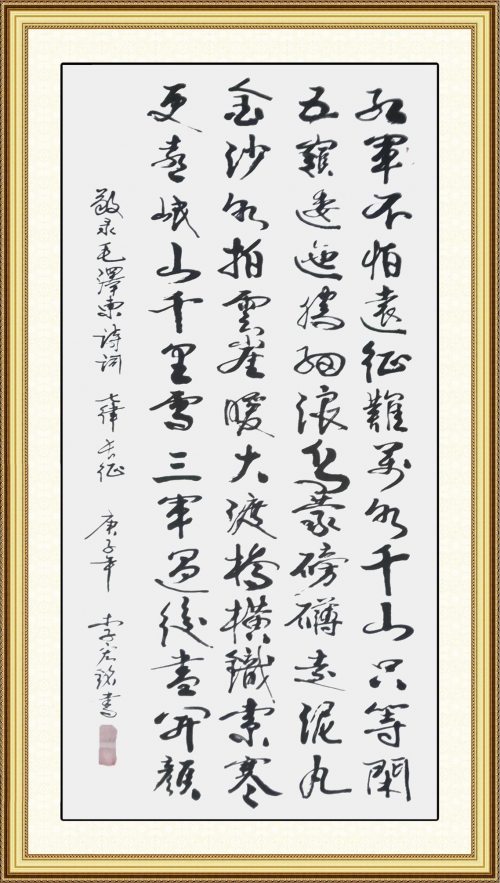 紅軍不怕遠征難萬水千山只等閑
五嶺逶迤騰細浪烏蒙磅礴走泥丸
金沙水拍雲崖暖大渡橋橫鐵索寒
更喜岷山千里雪三军過後盡开顏
敬录毛澤東詩词 七律 长征 庚子年 李宏銘書